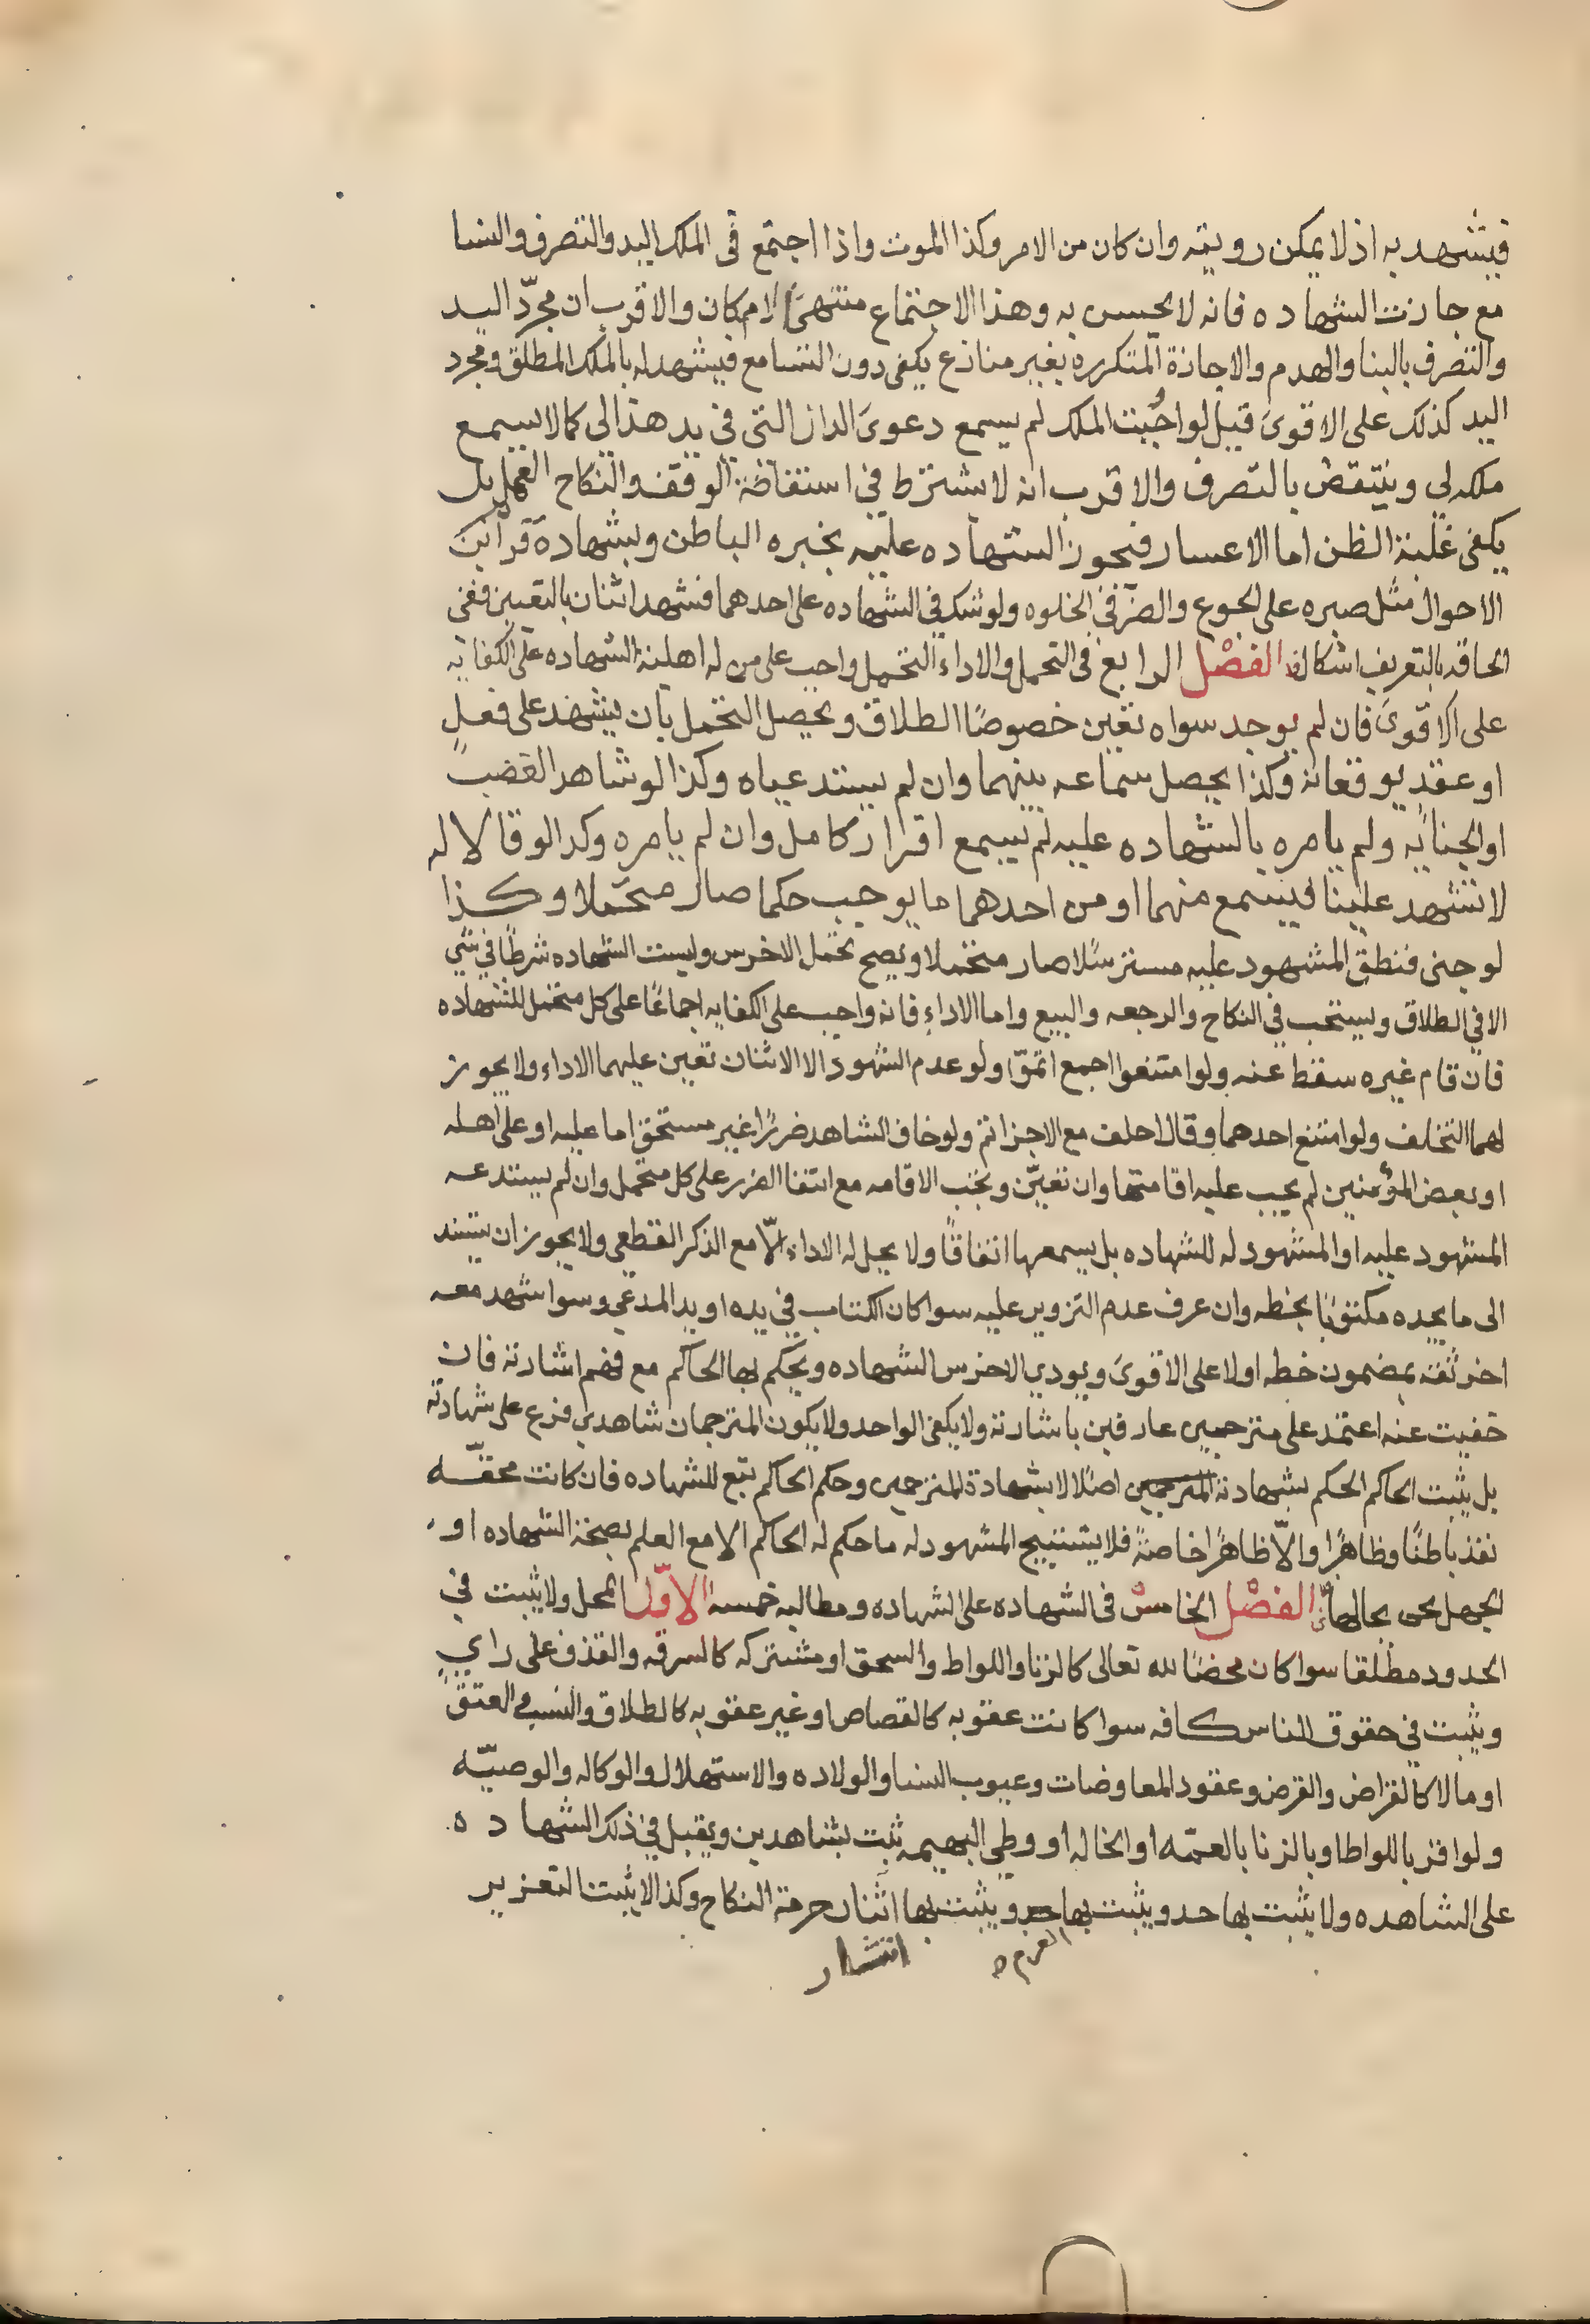 فيشهد به اذ لا يمكن رويته وان كان من الامر وكذا الموت واذا اجتمع في الملك اليد والتصرف والتسا
مع جازت الشهاده فانه لا يحس به وهذا الاجتماع منتهى الامكان والاقرب ان مجرّد اليد
والتصرف بالبنا والهدم والاجازة المتكرره بغير منازع يكفى دون التسامع فيشهد له بالملك المطلق ومجرد
اليد كذلك على الاقوىَ قيل لو اوجبت الملك لم يسمع دعوىَ الدار التى في يد هذا لى كما لا يسمع
ملكه لى وينتقض بالتصرف والاقرب انه لا يشترط في استفاضة الوقف والنكاح العلم بل
يكفى غلبة الظن اما الاعسار فيحوز الشهاده عليه بخبره الباطن وبشهادة قرائن
الاحوال مثل صبره على الجوع والضرّ في الخلوه ولو شك في الشهاده على احدهما فشهد اثنان بالتعيين ففى
الحاقه بالتعريف اشكال الفصْل الرابع فى التحمل والاداء التحمل واجب على من له اهلية الشهاده على الكفايه
على الاقوىَ فان لم يوجد سواه تعين خصوصًا الطلاق ويحصل التحمل بان يشهد على فعلٍ
او عقدٍ يوقعانه وكذا يحصل سماعه بينهما وان لم يستدعياه وكذا لو شاهد الغصب
او الجنايه ولم يامره بالشهاده عليه لم يسمع اقرار كامل وان لم يامره وكدا لو قالا له
لا تشهد علينا فيسمع منهما او من احدهما ما يوجب حكما صار محتملا وكذا
لو جنى فنطق المشهود عليه مسترسلا صار متحملا ويصح تحمل الاخرس وليست الشهاده شرطًا في شي
الا في الطلاق ويستحب في النكاح والرجعه والبيع واما الاداء فانه واجب على الكفايه اجماعًا على كل متحمل للشهاده
فان قام غيره سقط عنه ولو امتنعوا اجمع اثموّا ولو عدم الشهود الا الاثنان تعين عليهما الاداء ولا يجوز
لهما التخلف ولو امتنع احدهما وقال احلف مع الاجزا اثم ولو خاف الشاهد ضررًا غير مستحق اما عليه او على اهله
او بعض المؤمنين لم يجب عليه اقامتها وان تعيّن ويجب الاقامه مع انتفا الضرر على كل متحمل وان لم يستدعه
المشهود عليه او المشهود له للشهاده بل يسمعها اتفاقًا ولا يحل له الاداء الّا مع الذكر القطعى ولا يجوز ان يستند
الى ما يجده مكتوبًا بخطه وان عرف عدم التزوير عليه سوا كان الكتاب في يده او يد المدعي وسوا شهد معه
اخر ثقه بمضمون خطه اولا على الاقوىَ ويودي الاخرس الشهاده ويحكم بها الحاكم مع فهم اشارته فان
خفيت عنه اعتمد على مترجمين عارفين باشارته ولا يكفى الواحد ولا يكون المترجمان شاهدي فرع على شهادته
بل يثبت الحاكم الحكم بشهادته المترجمين اصلا لا بشهادة المترجمين وحكم الحاكم تبع للشهاده فان كانت محقّه
نفذ باطنًا وظاهرًا والّا ظاهرًا خاصةً فلا يستبيح المشهود له ما حكم له الحاكم الا مع العلم بصحة الشهاده او
الجهل بحى بحالها الفصْل الخامسْ فى الشهاده على الشهاده ومطالبه خمسه الاوّل المحل ولا يثبت في
الحدود مطلقا سوا كان محضًا لله تعالى كالزنا واللواط والسحق او مشتركه كالسرقه والقذف على رايٍ
ويثبت في حقوق الناس كافه سوا كانت عقوبه كالقصاص او غير عقوبه كالطلاق والنسب والعتق
او مالا كالقراض والقرض وعقود المعاوضات وعيوب النسا والولاده والاستهلال والوكاله والوصيّه
ولو اقر باللواط او بالزنا بالعمّه او الخاله او وطي البهيمه ثبت بشاهدين ويقبل في ذلك الشهاده
على الشاهده ولا يثبت بها حد ويثبت بها حد ويثبت بها اثنان حرمة النكاح وكذا لا يثبت التعزير
انتشار